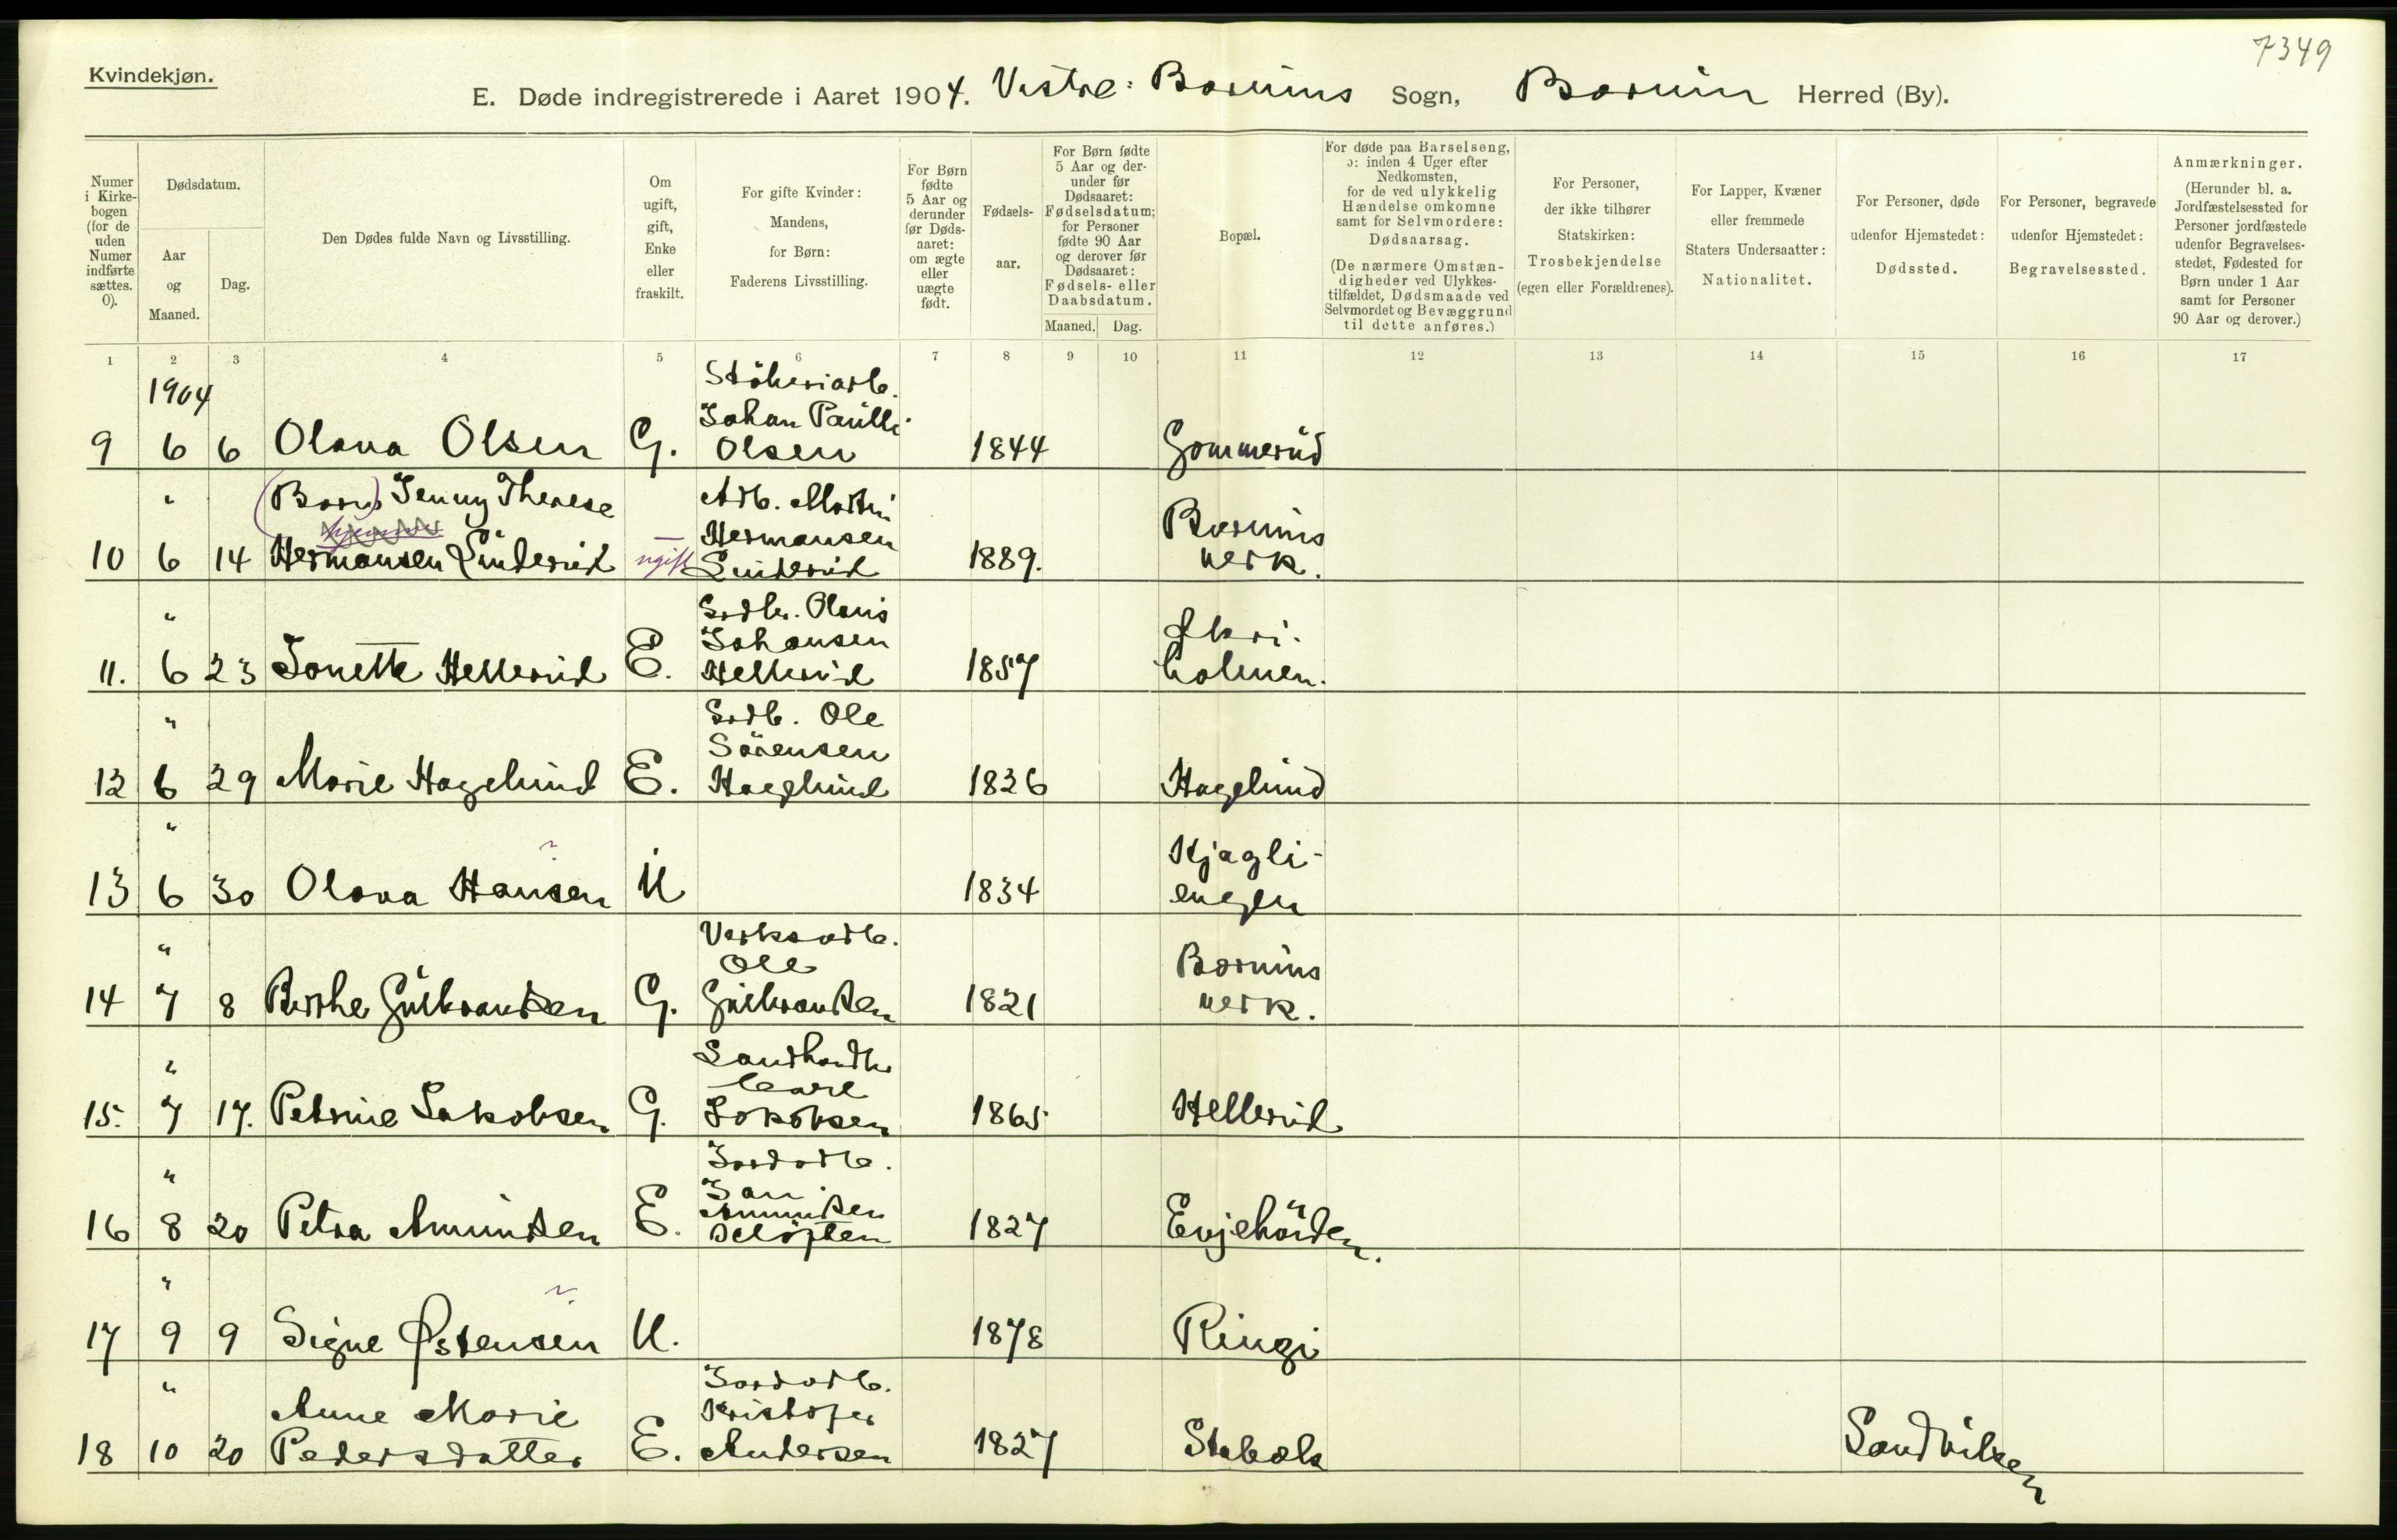 7349
Kvindekjøn.
E. Døde indregistrerede i Aaret 1904. Vestre Bærums Sogn, Bærum Herred (By).
Numer i Kirke-bogen (for de uden Numer indførte sættes. 0).
Dødsdatum.
Aar og Maaned.
Dag.
Den Dødes fulde Navn og Livsstilling.
Om ugift, gift, Enke eller fraskilt.
For gifte Kvinder: Mandens, for Børn: Faderens Livsstilling.
For Børn fødte 5 Aar og derunder før Døds-aaret: om ægte eller uægte født.
Fødsels-aar.
For Børn fødte 5 Aar og der-under før Dødsaaret: Fødselsdatum; for Personer fødte 90 Aar og derover før Dødsaaret: Fødsels- eller Daabsdatum.
Maaned. Dag.
Bopæl.
For døde paa Barselseng, ɔ: inden 4 Uger efter Nedkomsten, for de ved ulykkelig Hændelse omkomne samt for Selvmordere: Dødsaarsag.
(De nærmere Omstæn-digheder ved Ulykkes-tilfældet, Dødsmaade ved Selvmordet og Bevæggrund til dette anføres.)
For Personer, der ikke tilhører Statskirken: Trosbekjendelse (egen eller Forældrenes).
For Lapper, Kvæner eller fremmede Staters Undersaatter: Nationalitet.
For Personer, døde udenfor Hjemstedet: Dødssted.
For Personer, begravede udenfor Hjemstedet: Begravelsessted.
Anmærkninger.
(Herunder bl. a. Jordfæstelsessted for Personer jordfæstede udenfor Begravelses-stedet, Fødested for Børn under 1 Aar samt for Personer 90 Aar og derover.)
1 2 3 4 5 6 7 8 9 10 11 12 13 14 15 16 17
1904
9 6 6 Olava Olsen G. Johan Olsen 1844 Gommerud
" (Barn) Jenny Therese
10 6 14 Hermansen Linderud ugift Arb. Martin Hermansen Linderud 1889. Bærums verk.
"
11. 6 23 Jonette Hellerud E. Olaus Johansen Hellerud 1857 Skri-holmen.
"
12 6 29 Marie Hagelund E. Ole Sørensen Hagelund 1826 Hagelund
"
13 6 30 Olava Hansen U 1834 Kjagli-engen
"
14 7 8 Birthe Gulbrandsen G. Verksarb. Ole Gulbrandsen 1821 Bærums verk.
"
15. 7 17. Petrine Jakobsen G. Landhandler Carl Jakobsen 1865 Hellerud
"
16 8 20 Petra Amundsen E. Jordarb. Jan Amundsen 1827 Evjehöiden.
"
17 9 9 Signe Østensen U. 1878 Ringi
"
18 10 20 Anne Marie Pedersdatter E. Jordarb. Kristofer Andersen 1827 Stabæk Sandviken